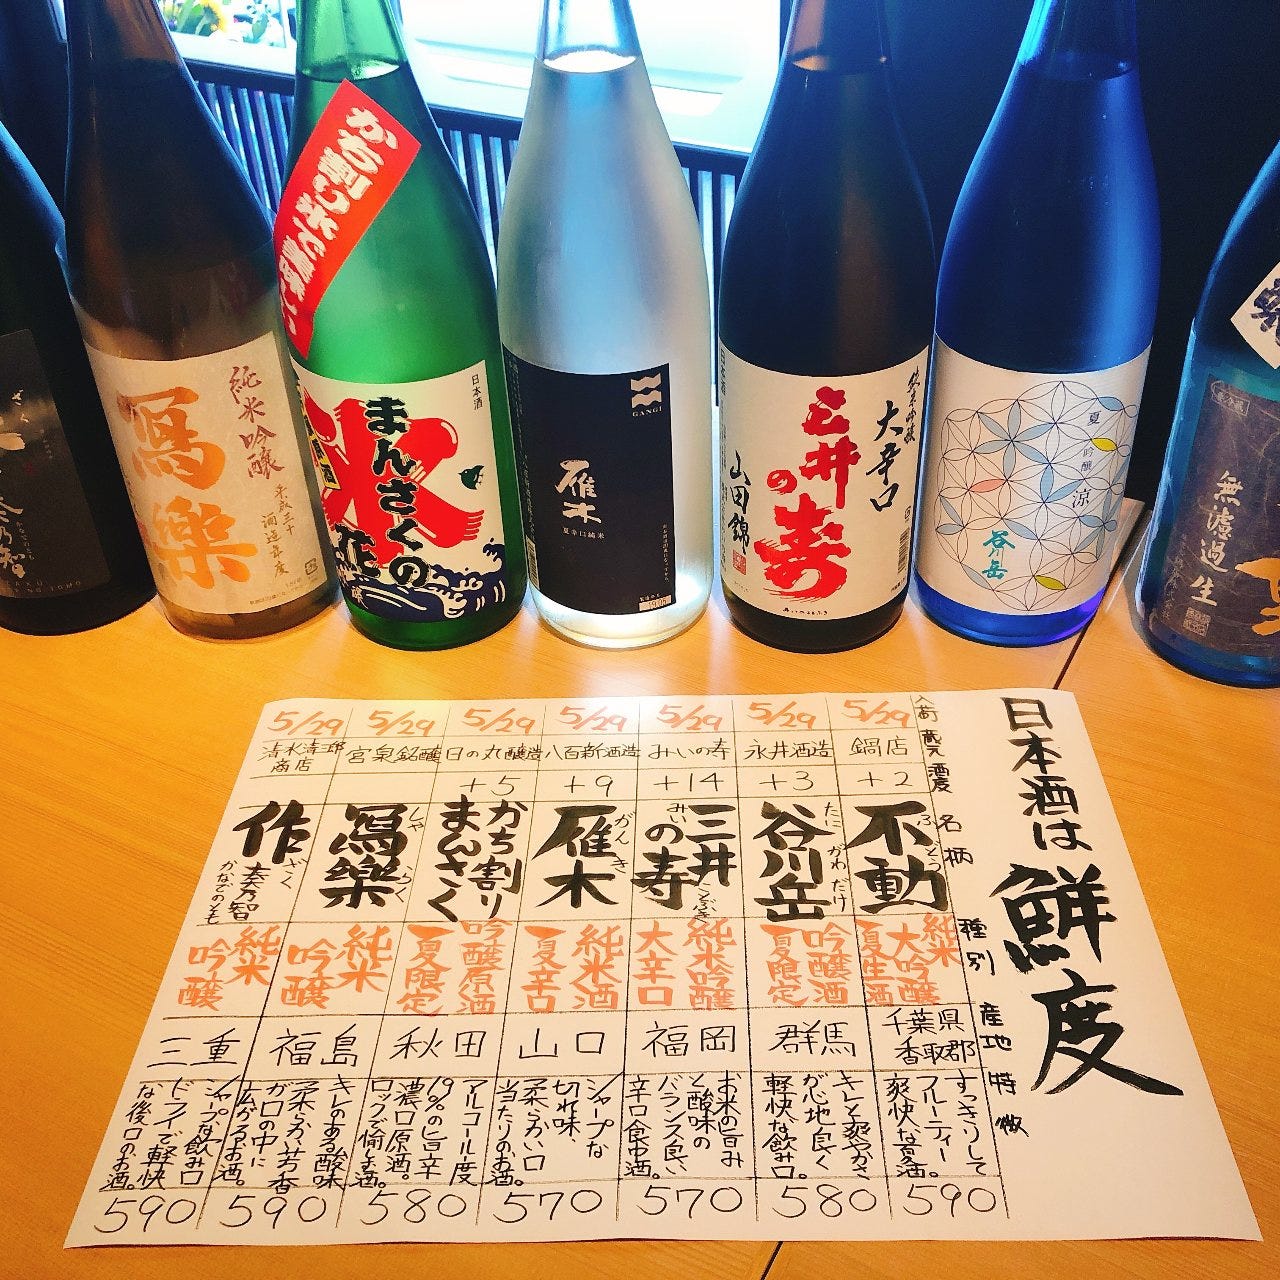 かち割り氷で美味しい
ざく
奏乃智
純米吟醸
寫樂
平成三十
酒造年度
日本酒
原酒
氷
まんさくの
花
GANGI
雁木
夏辛口純米
19.05
日本酒
純米吟醸
大辛口
三井の寿
山田錦
夏
吟醸
涼
谷川岳
無濾過生
日本酒は鮮度
入荷 蔵元 酒度 名柄 種別 産地 特徴
5/29 鍋店 +2
不動 ふどう
純米大吟醸
夏生酒
千葉県
香取郡
すっきりして
フルーティー
爽快な夏酒。
590
5/29 永井酒造 +3
谷川岳 たにがわだけ
吟醸酒
夏限定
群馬
キレと爽やかさ
が心地良く
軽快な飲み口。
580
5/29 みいの寿 +14
三井の寿 みいのことぶき
純米吟醸
大辛口
福岡
お米の旨み
と酸味の
バランス良い
辛口食中酒。
570
5/29 八百新酒造 +9
雁木 がんぎ
純米酒
夏辛口
山口
シャープな
切れ味、
柔らかい口
当たりのお酒。
570
5/29 日の丸醸造 +5
かち割り
まんさく
吟醸原酒
夏限定
秋田
アルコール度
19%の旨辛
濃口原酒。
ロックで愉しむ酒。
580
5/29 宮泉銘醸
寫樂 しゃらく
純米
吟醸
福島
キレのある酸味
柔らか、芳香
が口の中に
広がるお酒。
590
5/29 清水清三郎
商店
作 ざく
奏乃智 かなでのとも
純米
吟醸
三重
シャープな飲み口
ドライで軽快
な後口のお酒。
590